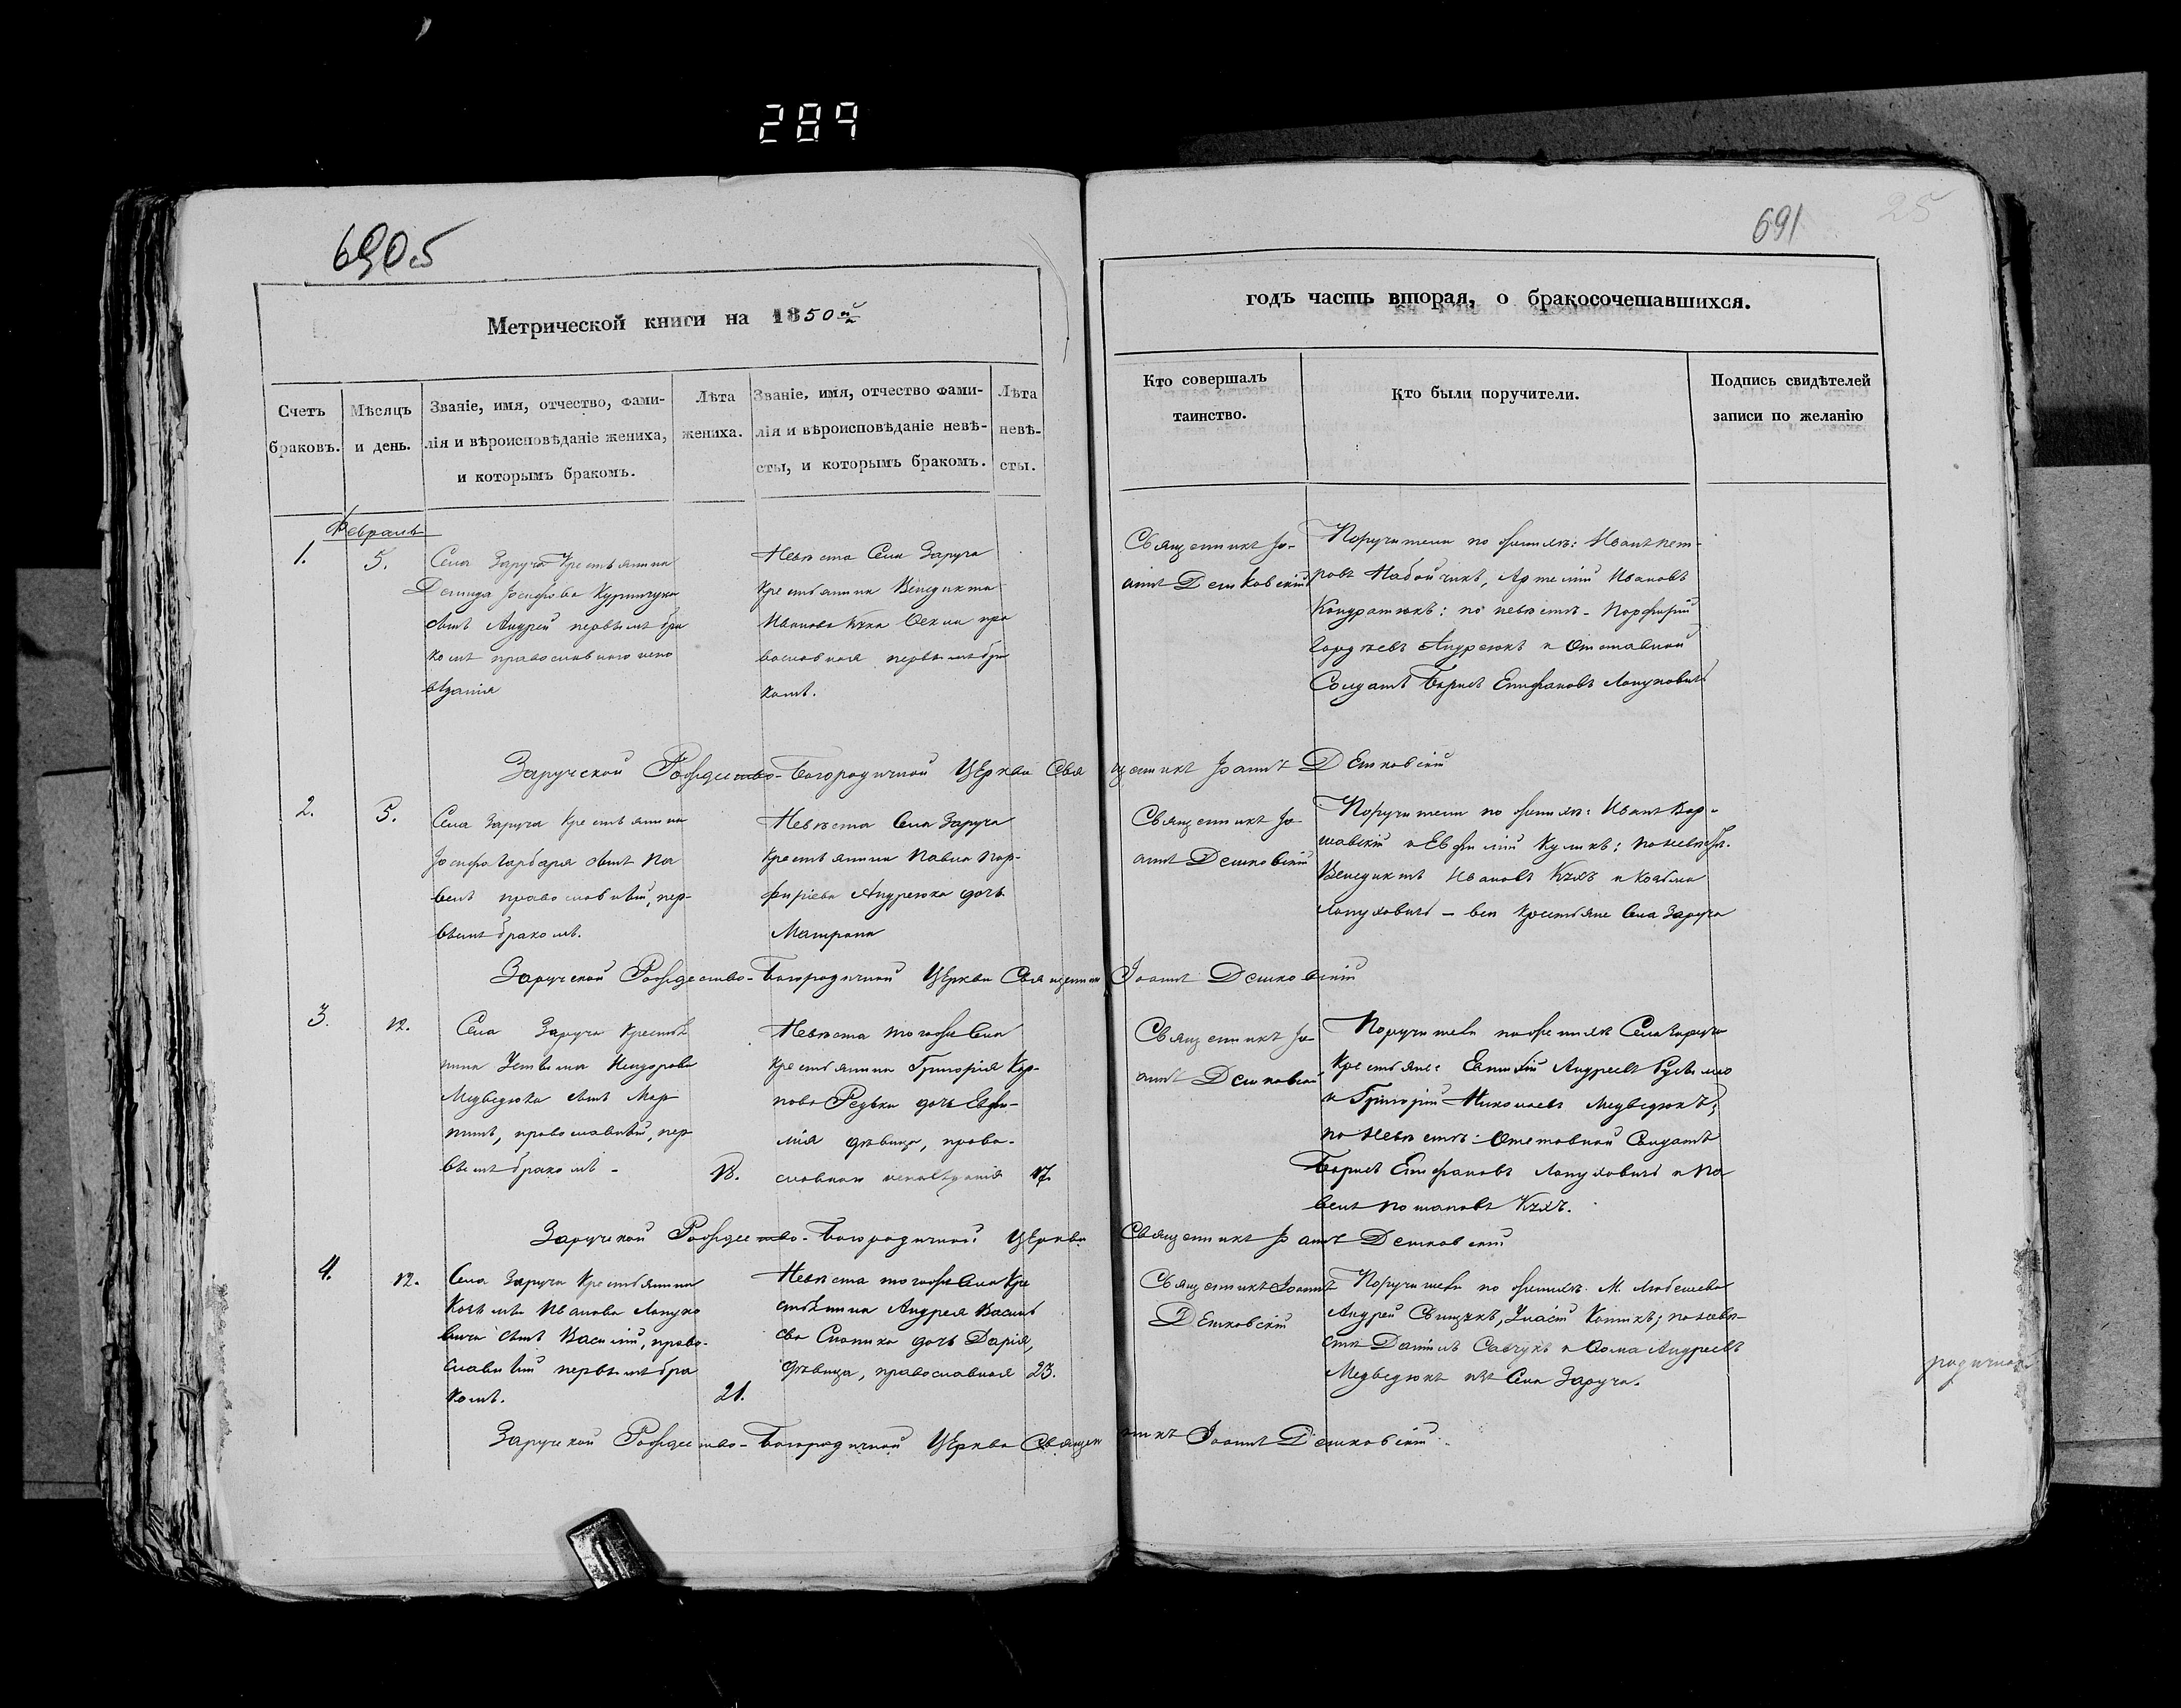 289
6905
691
25
Метрической книги на 1850й
годъ часть вторая, о бракосочетавшихся.
Счетъ браковъ.
Мѣсяцъ и день.
Званіе, имя, отчество, фами-
лія и вѣроисповѣданіе жениха,
и которымъ бракомъ.
Лѣта жениха.
Званіе, имя, отчество фами-
лія и вѣроисповѣданіе невѣ-
сты, и которымъ бракомъ.
Лѣта невѣ-
сты.
Кто совершалъ
таинство.
Кто были поручители.
Подпись свидѣтелей
записи по желанію
Февраль
1.
5.
Села Заруча Крестьянина
Демида Іосифова
сынъ Андрей первымъ бра
комъ православнаго испо
вѣданія
Невѣста Села Заруча
Крестьянина Венедикта
Иванова Кзка Ѳекла пра
вославная первымъ бра
комъ.
Священникъ Іо-
аннъ Демковскій
Поручители по женихѣ: Иванъ Пет-
ровъ Набойчикъ, Артемій Ивановъ
Кондратюкъ: по невѣстѣ - Порфирій
Гордѣевъ Андреюкъ и Отставной
Солдатъ Борисъ Епифановъ Лопуховичъ
Заруческой Рождество-Богородичной Церкви Священникъ Іоаннъ Демковскій
2.
5.
Села Заруча Крестьянина
Іосифа Гарбаря сынъ Па
велъ православный, пер-
вымъ бракомъ.
Невѣста Села Заруча
Крестьянина Павла Пор-
фиріева Андреюка дочь
Матрона
Священникъ Іо-
аннъ Демковскій
Поручители по женихѣ: Иванъ Вар-
шавскій и Евфимій Куликъ; по невѣстѣ.
Венедиктъ Ивановъ Кзкъ и Козьма
Лопуховичъ - вси Крестьяне Села Заруча
Заруческой Рождество-Богородичной Церкви Священникъ Іоаннъ Демковскій
3.
12.
Села Заруча Крестья
нина Устина
Медведюка сынъ Мар
тинъ, православный, пер
вымъ бракомъ -
18.
Невѣста тогожъ Села
Крестьянина Григорія Кар-
пова Редька дочь Евфи-
мія дѣвица, право-
славнаго исповѣданія
17.
Священникъ Іо-
аннъ Демковскій
Поручители по женихѣ Села Заруча
Крестьяне: Андреевъ
и Григорій Николаевъ Медведюкъ;
по Невѣстѣ: Отставной Солдатъ
Борисъ Епифановъ Лопуховичъ и Па
велъ Потаповъ Кзкъ.
Заруческой Рождество-Богородичной Церкви Священникъ Іоаннъ Демковскій
4.
12.
Села Заруча Крестьянина
Козьмы Иванова Лопухо
вича сынъ Василій, право-
славный первымъ бра
комъ.
21.
Невѣста тогожъ Села Кре
стьянина Андрея Василь
ева дочь Дарія,
дѣвица, православная
23.
Священникъ Іоаннъ
Демковскій
Поручители по женихѣ. М. Любешева
Андрей Свищукъ, Копикъ; по невѣ-
стѣ Даніилъ Савчукъ и Ѳома Андреевъ
Медведюкъ изъ Села Заруча.
Заруческой Рождество-Богородичной Церкви Священникъ Іоаннъ Демковскій